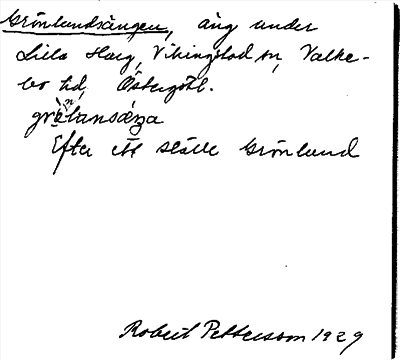 Grönlandsängen, äng under
Lilla Harg, Vikingstad sn, Valke-
bo hd, Östergötl.
Efter ett ställe Grönland
Robert Pettersson 1929